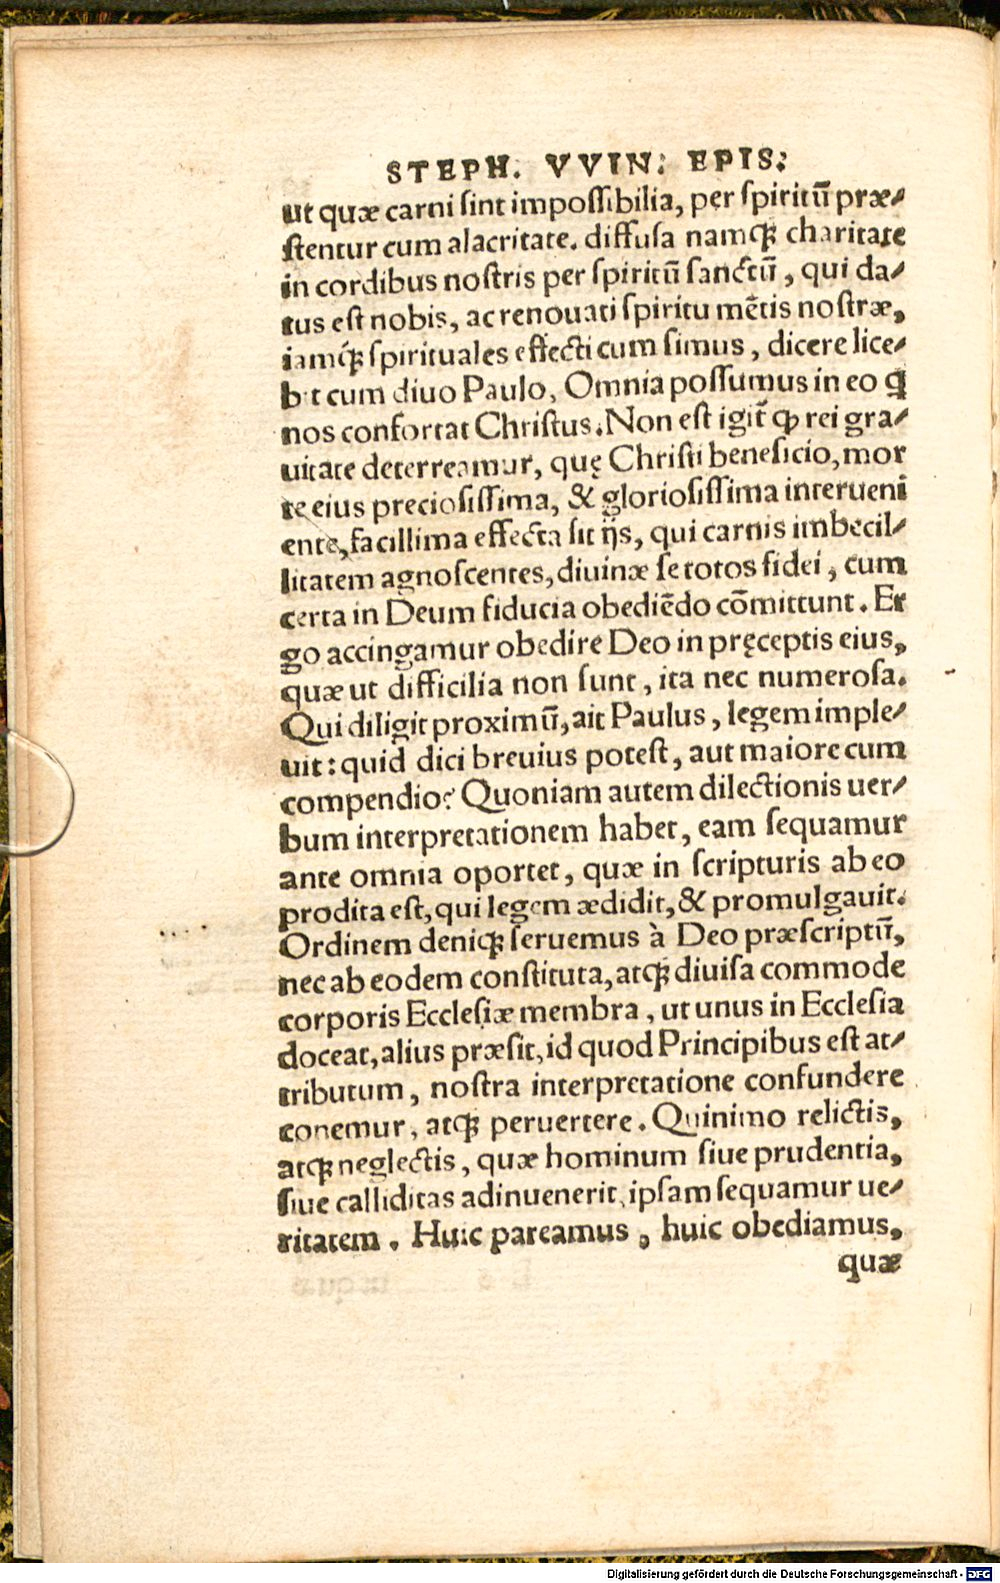 STEPH. VVIN. EPIS.
ut quæ carni ſint impoſſibilia, per ſpiritũ præ⸗
ſtentur cum alacritate. diffuſa namq́; charitate
in cordibus noſtris per ſpiritũ ſanctũ, qui da⸗
tus eſt nobis, ac renouati ſpiritu mẽtis noſtræ,
iamq́; ſpirituales effecti cum ſimus, dicere lice⸗
bit cum diuo Paulo, Omnia poſſumus in eo ꝗ
nos confortat Chriſtus. Non eſt igit̃ ꝙ rei gra⸗
uitate deterreamur, quę Chriſti beneficio, mor
te eius precioſiſſima, & glorioſiſſima interueni
ente, facillima effecta ſit ijs, qui carnis imbecil⸗
litatem agnoſcentes, diuinæ ſe totos fidei, cum
certa in Deum fiducia obediẽdo cõmittunt. Er
go accingamur obedire Deo in pręceptis eius,
quæ ut difficilia non ſunt, ita nec numeroſa.
Qui diligit proximũ, ait Paulus, legem imple⸗
uit: quid dici breuius poteſt, aut maiore cum
compendio? Quoniam autem dilectionis uer⸗
bum interpretationem habet, eam ſequamur
ante omnia oportet, quæ in ſcripturis ab eo
prodita eſt, qui legem ædidit, & promulgauit.
Ordinem deniq́; ſeruemus à Deo præſcriptũ,
nec ab eodem conſtituta, atq́; diuiſa commode
corporis Eccleſiæ membra, ut unus in Eccleſia
doceat, alius præſit, id quod Principibus eſt at⸗
tributum, noſtra interpretatione confundere
conemur, atq́; peruertere. Quinimo relictis,
atq́; neglectis, quæ hominum ſiue prudentia,
ſiue calliditas adinuenerit, ipſam ſequamur ue⸗
ritatem. Huic pareamus, huic obediamus,
quæ
Digitalisierung gefördert durch die Deutsche Forschungsgemeinschaft - DFG